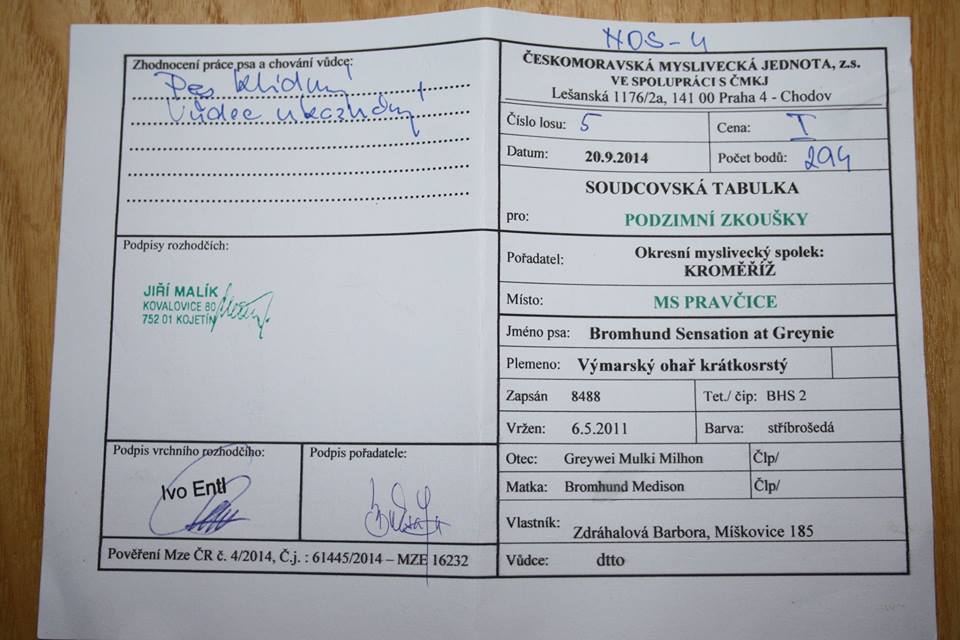 Zhodnocení práce psa a chování vůdce:
Pes klidný
Vůdce ukázněný
Podpisy rozhodčích:
JIŘÍ MALÍK
KOVALOVICE 80
752 01 KOJETÍN
Podpis vrchního rozhodčího:
Ivo Entl
Podpis pořadatele:
Pověření Mze ČR č. 4/2014, Č.j. : 61445/2014 – MZE 16232
NOS-4
ČESKOMORAVSKÁ MYSLIVECKÁ JEDNOTA, z.s.
VE SPOLUPRÁCI S ČMKJ
Lešanská 1176/2a, 141 00 Praha 4 - Chodov
Číslo losu: 5
Cena: I
Datum: 20.9.2014
Počet bodů: 294
SOUDCOVSKÁ TABULKA
pro: PODZIMNÍ ZKOUŠKY
Pořadatel: Okresní myslivecký spolek:
KROMĚŘÍŽ
Místo: MS PRAVČICE
Jméno psa: Bromhund Sensation at Greynie
Plemeno: Výmarský ohař krátkosrstý
Zapsán 8488 Tet./ čip: BHS 2
Vržen: 6.5.2011 Barva: stříbrošedá
Otec: Greywei Mulki Milhon Člp/
Matka: Bromhund Medison Člp/
Vlastník: Zdráhalová Barbora, Míškovice 185
Vůdce: dtto